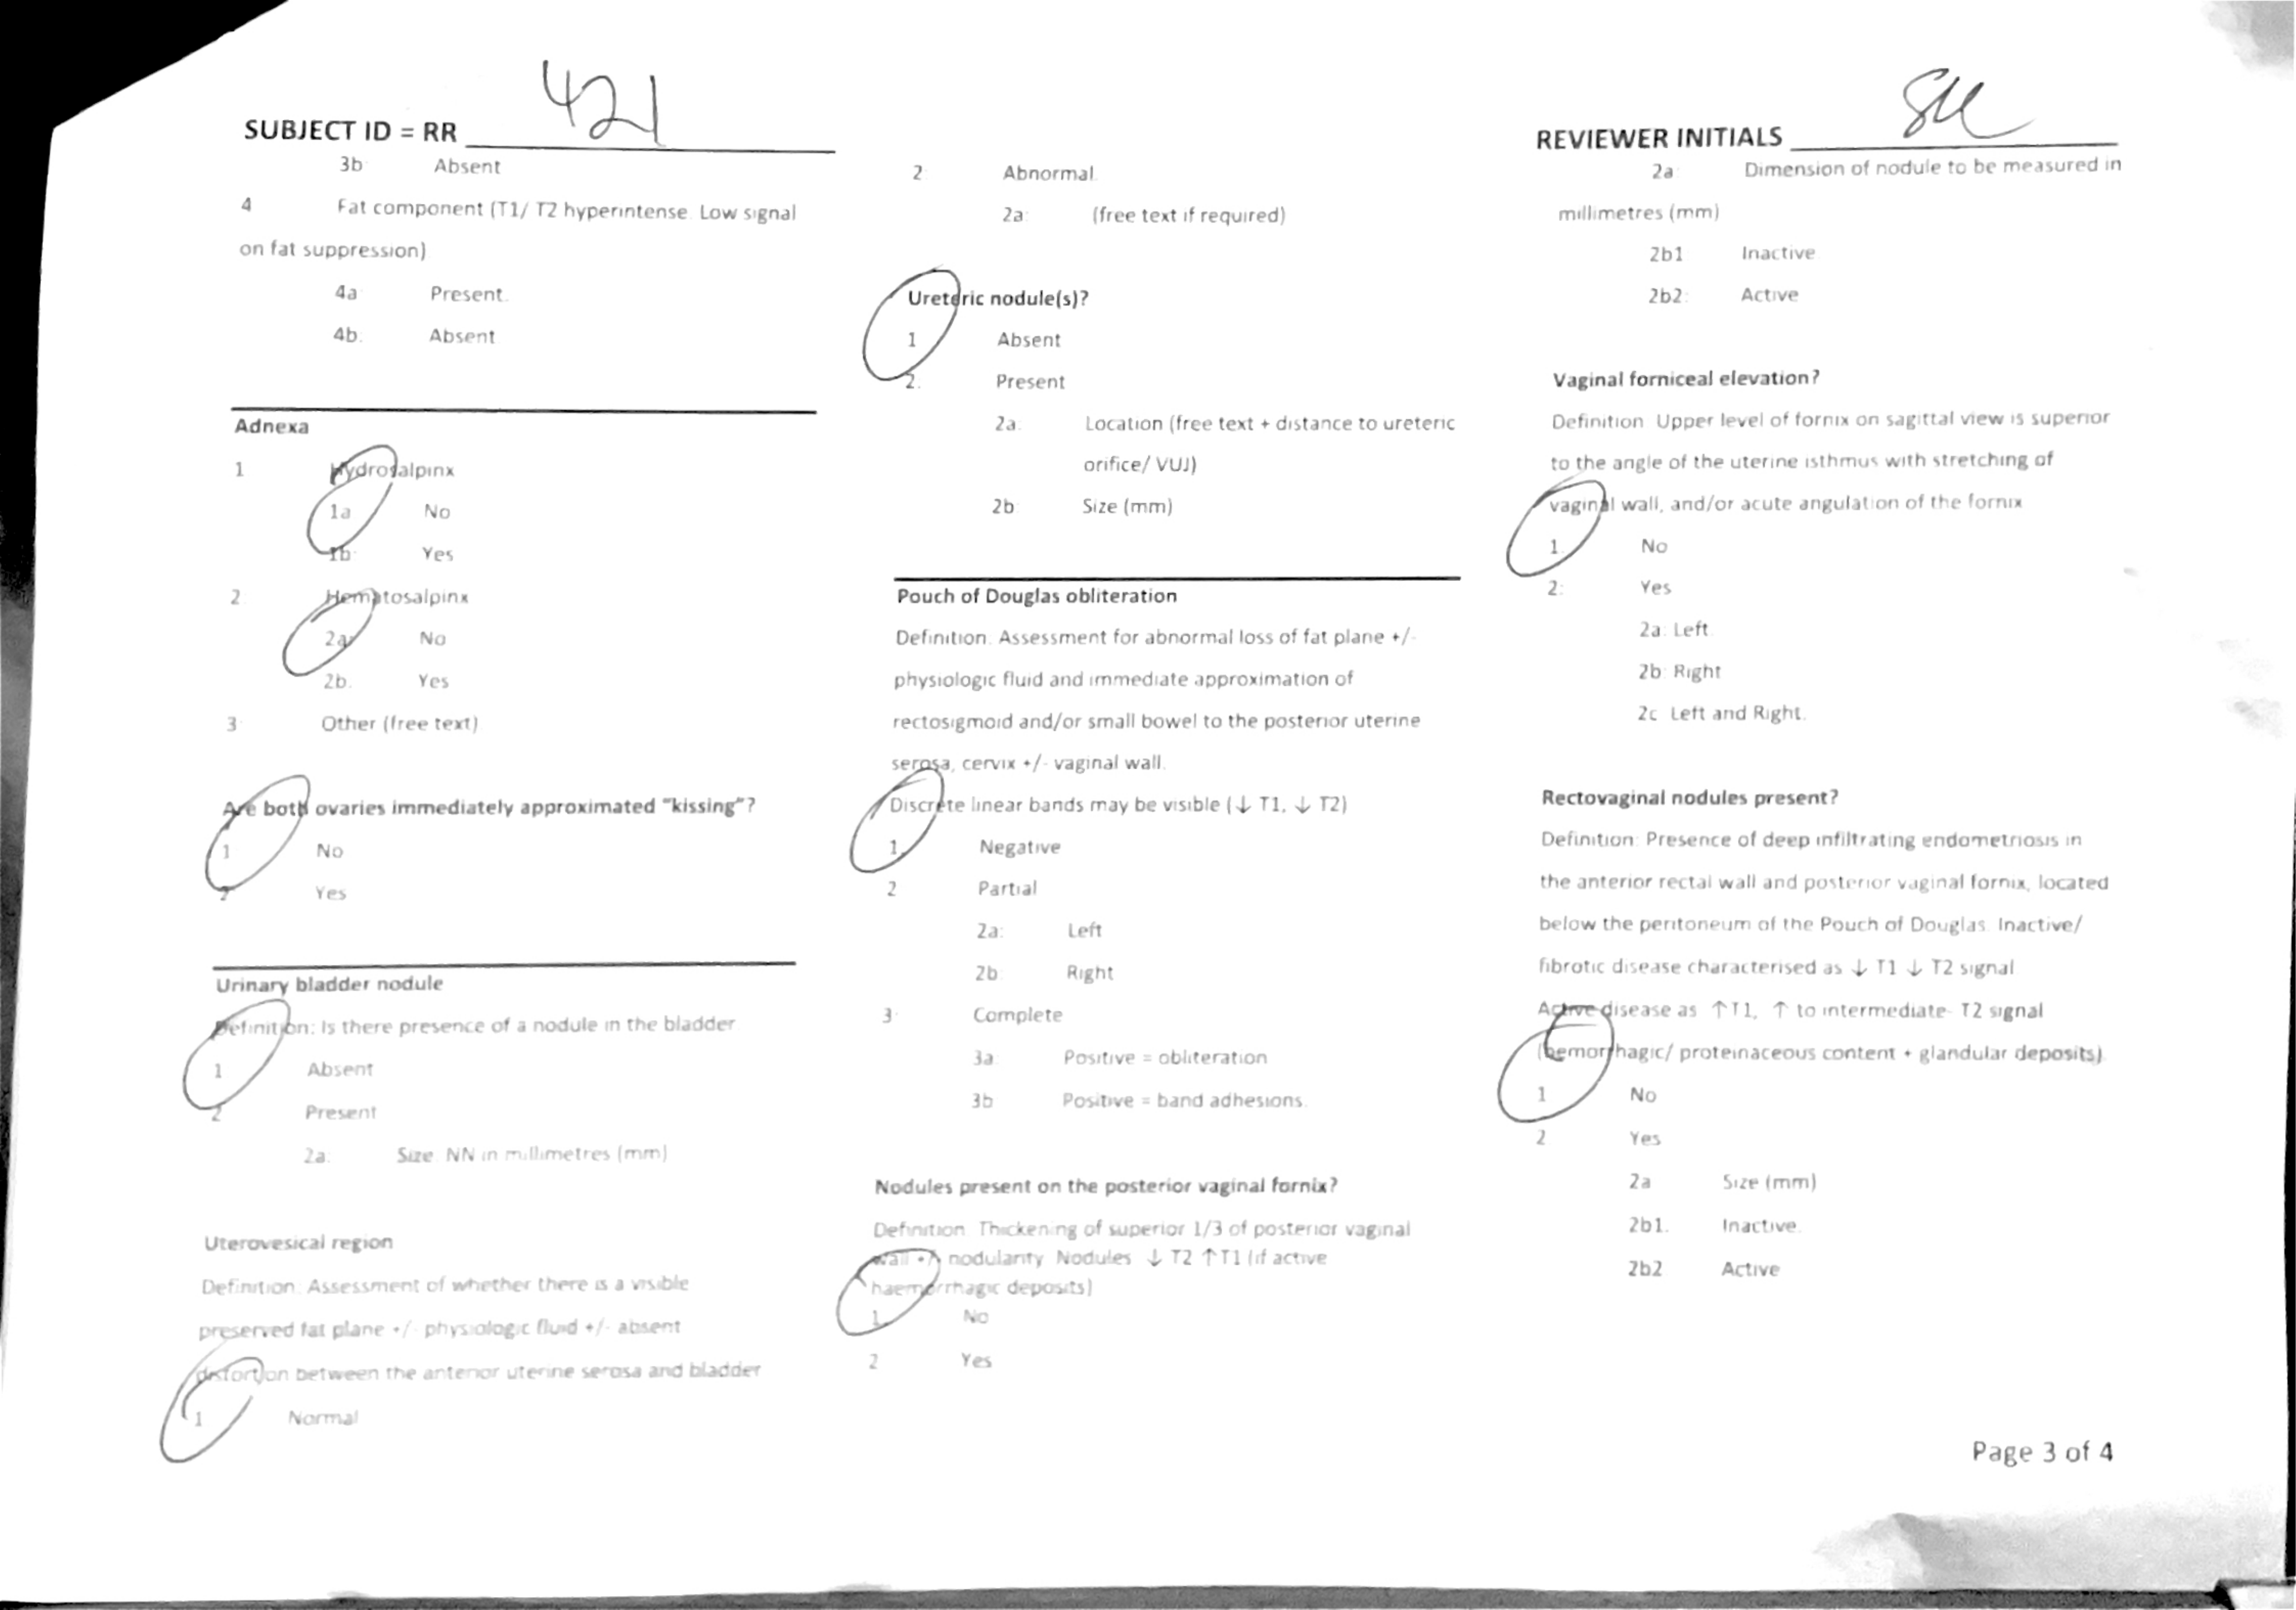 SUBJECT ID = RR 421
3b: Absent
4 Fat component (T1/ T2 hyperintense. Low signal
on fat suppression)
4a: Present.
4b. Absent
Adnexa
1 Hydrosalpinx
1a No
1b: Yes
2 Hematosalpinx
2a: No
2b. Yes
3: Other (free text)
Are both ovaries immediately approximated "kissing"?
1 No
2 Yes
Urinary bladder nodule
Definition: Is there presence of a nodule in the bladder
1 Absent
2 Present
2a: Size. NN in millimetres (mm)
Uterovesical region
Definition: Assessment of whether there is a visible
preserved fat plane +/- physiologic fluid +/- absent
distortion between the anterior uterine serosa and bladder
1 Normal
2: Abnormal.
2a: (free text if required)
Ureteric nodule(s)?
1 Absent
2. Present
2a: Location (free text + distance to ureteric
orifice/ VUJ)
2b Size (mm)
Pouch of Douglas obliteration
Definition: Assessment for abnormal loss of fat plane +/-
physiologic fluid and immediate approximation of
rectosigmoid and/or small bowel to the posterior uterine
serosa, cervix +/- vaginal wall.
Discrete linear bands may be visible (↓ T1, ↓ T2)
1. Negative
2 Partial
2a: Left
2b: Right
3: Complete
3a: Positive = obliteration
3b Positive = band adhesions.
Nodules present on the posterior vaginal fornix?
Definition: Thickening of superior 1/3 of posterior vaginal
wall +/- nodularity. Nodules ↓ T2 ↑T1 (if active
haemorrhagic deposits)
1. No
2 Yes
REVIEWER INITIALS
2a: Dimension of nodule to be measured in
millimetres (mm)
2b1 Inactive.
2b2: Active
Vaginal forniceal elevation?
Definition: Upper level of fornix on sagittal view is superior
to the angle of the uterine isthmus with stretching of
vaginal wall, and/or acute angulation of the fornix
1. No
2: Yes
2a: Left.
2b: Right
2c Left and Right.
Rectovaginal nodules present?
Definition: Presence of deep infiltrating endometriosis in
the anterior rectal wall and posterior vaginal fornix, located
below the peritoneum of the Pouch of Douglas. Inactive/
fibrotic disease characterised as ↓ T1 ↓ T2 signal.
Active disease as ↑T1, ↑ to intermediate- T2 signal
(hemorrhagic/ proteinaceous content + glandular deposits).
1 No
2 Yes
2a Size (mm)
2b1. Inactive.
2b2 Active
Page 3 of 4